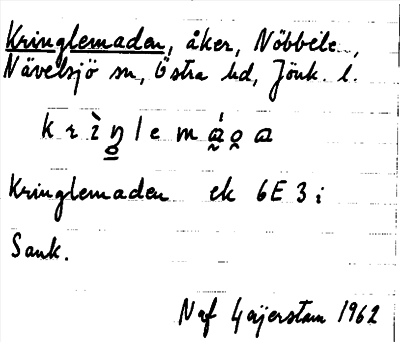 Kringlemaden, åker, Nöbbele,
Nävelsjö sn, Östra hd, Jönk. l.
Kringlemaden ek 6E 3i
Sank.
Naf Gaijerstam 1962